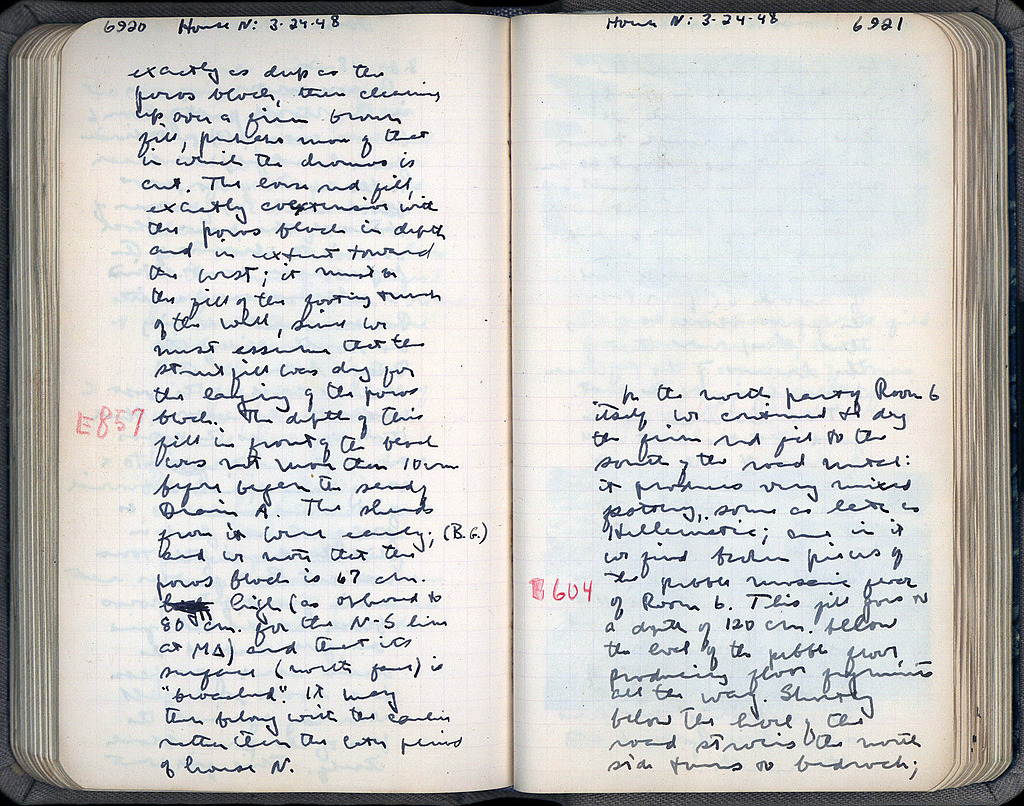 6920 House N: 3-24-48
exactly as deep as the
poros block, then cleaning
up over a firm brown
fill, perhaps more of that
in which the dromos is
cut. The loose red fill,
exactly coextensive with
the poros block in depth
and in extent toward
the west; it must be
the fill of the footing trench
of the wall, since we
must assume that the
stroses fill was dug for
the laying of the poros
E857
block. The depth of this
fill in front of the block
was not more than 10 cm
before began the sandy
Drain A. The sherds
from it were early; (B.G.)
and we note that the
poros block is 67 cm.
high (as opposed to
80 cm. for the N-S line
at MΔ) and that its
surface (north face) is
"broached". It may
then belong with the earlier
rather than the later period
of house N.
House N: 3-24-48 6921
In the north part of Room 6
itself we continued to dig
the firm red fill to the
south of the road metal:
it produces very mixed
pottery, some as late as
Hellenistic; and in it
we find broken pieces of
the pebble mosaic floor
B604
of Room 6. This fill goes to
a depth of 120 cm. below
the level of the pebble floor,
producing floor fragments
all the way. Shortly
below the level of the
road stroses the north
side turns to bedrock;